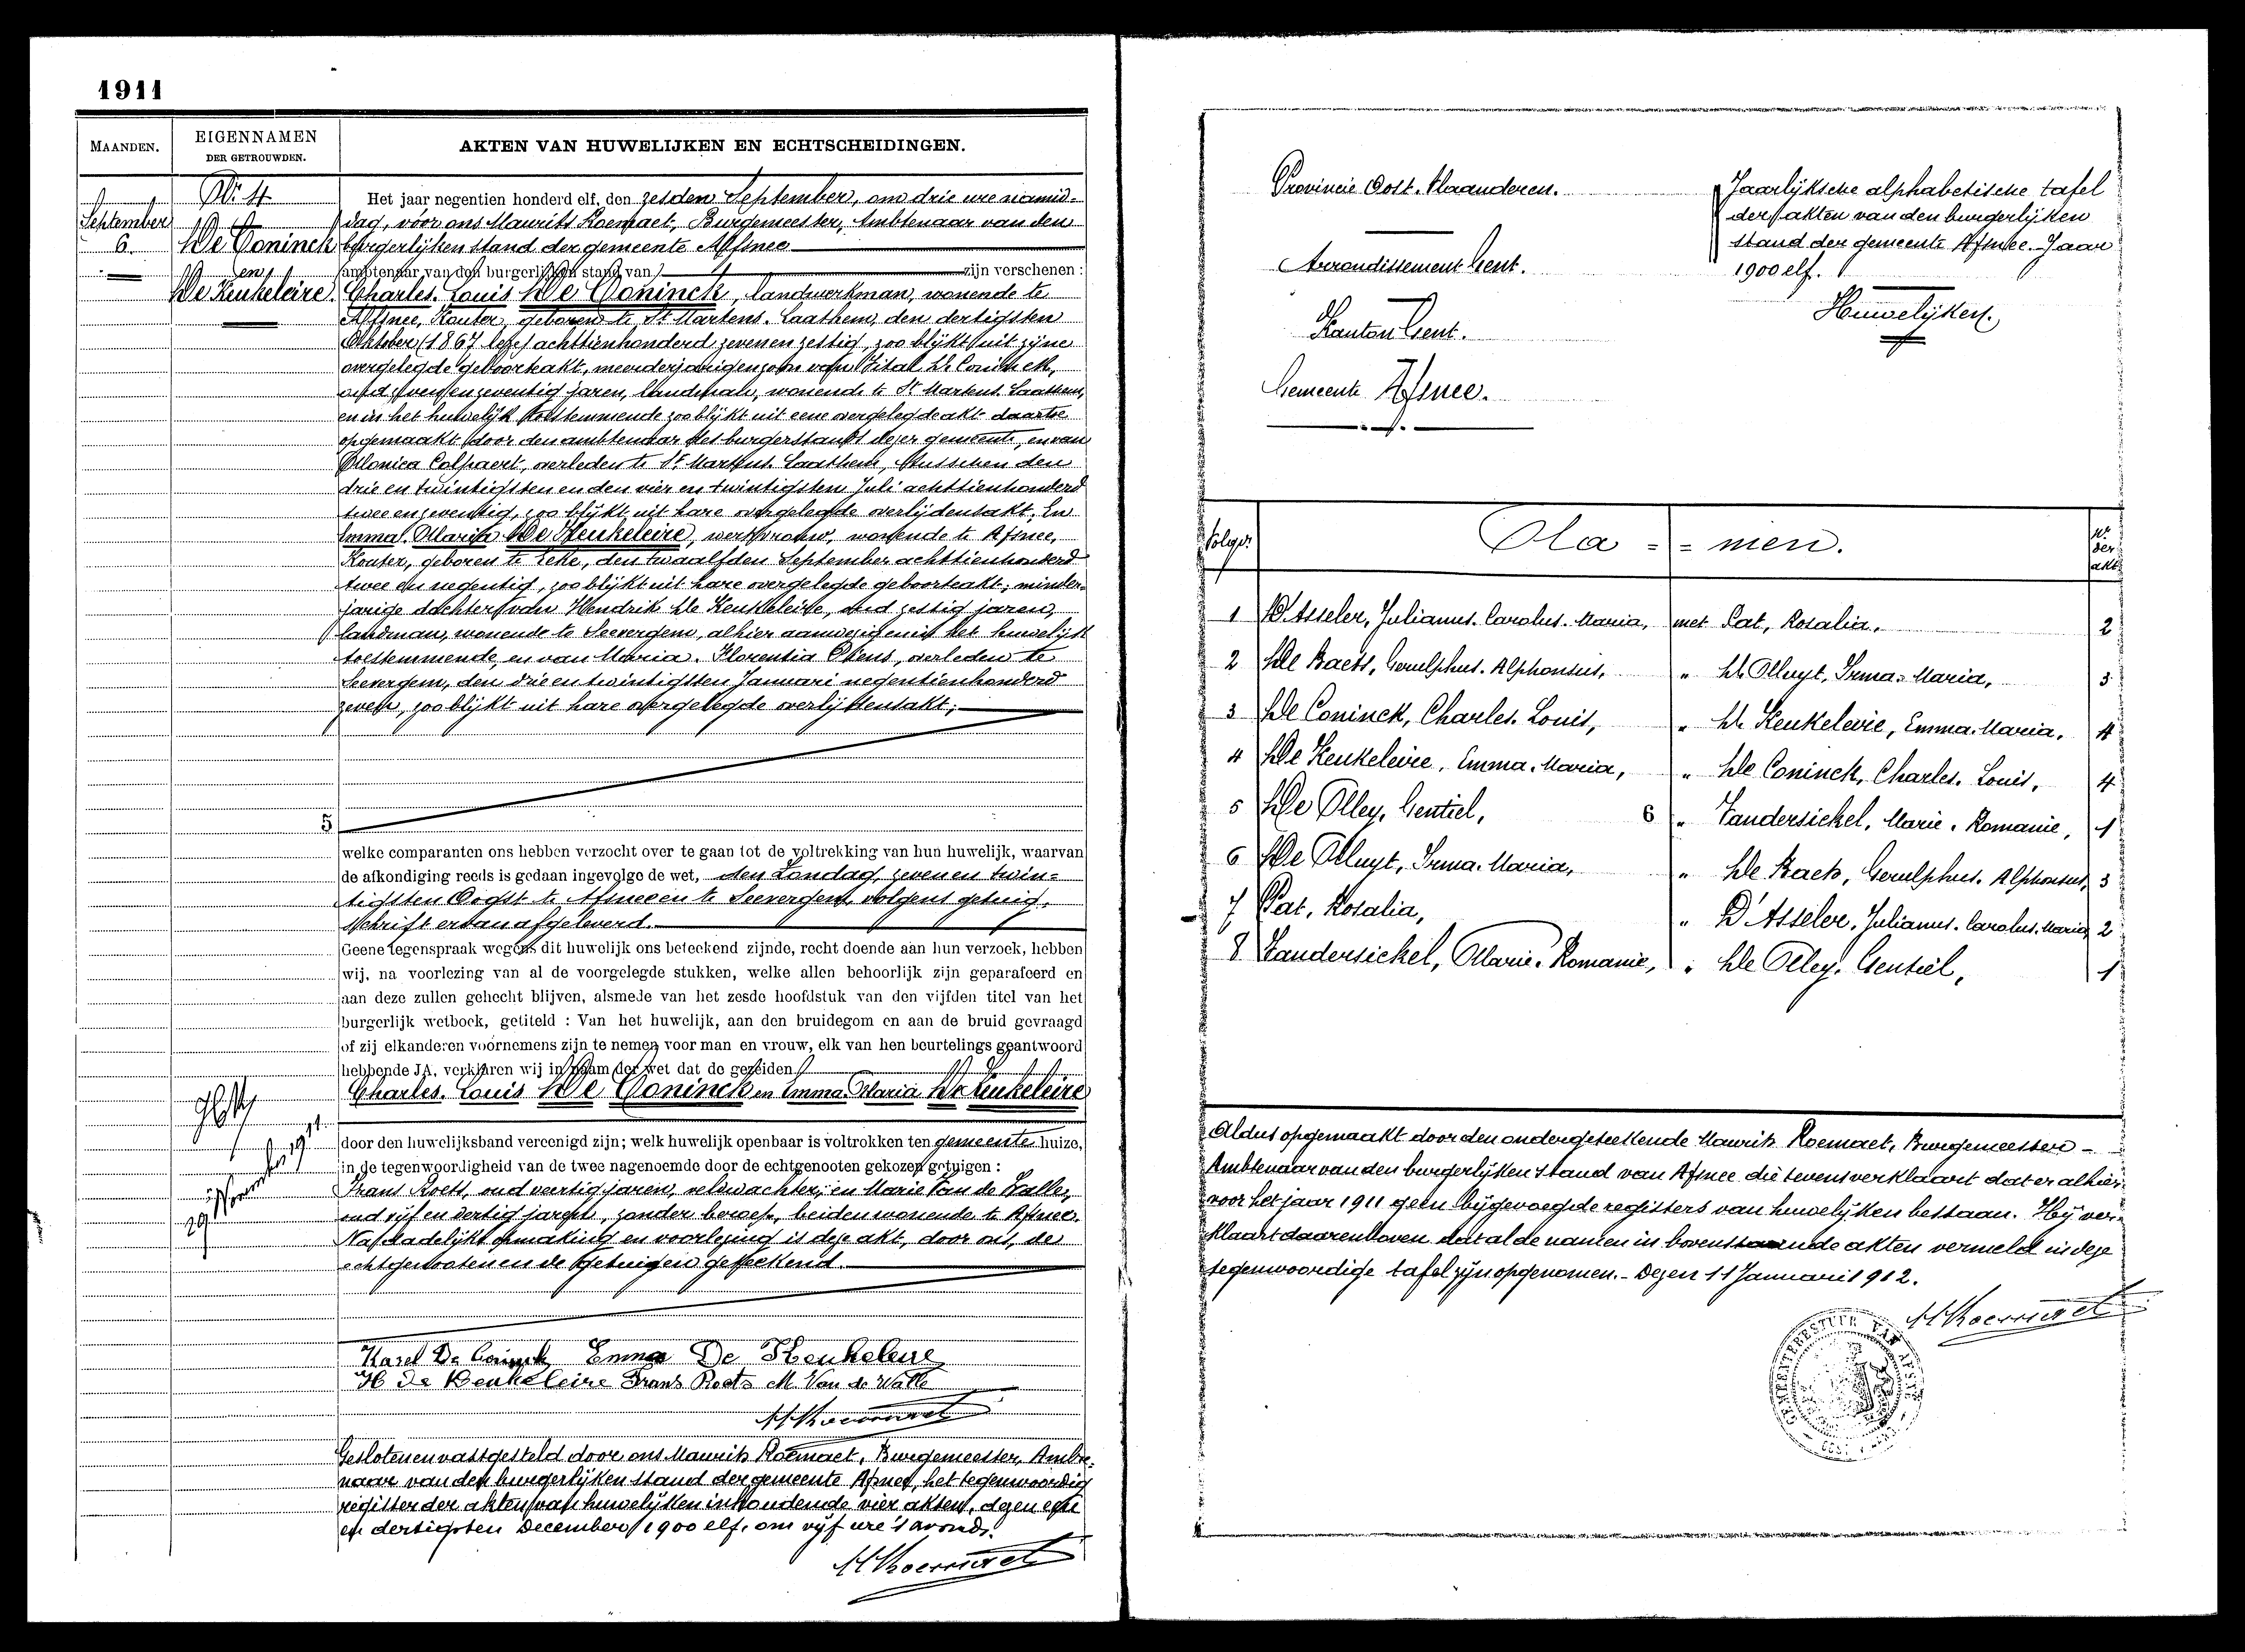 1911
MAANDEN.
EIGENNAMEN
DER GETROUWDEN.
AKTEN VAN HUWELIJKEN EN ECHTSCHEIDINGEN.
Nr. 4.
September
6.
De Coninck
en
De Keukeleire.
Het jaar negentien honderd elf, den zesden September, om drie ure namid-
dag, voor ons Maurits Roemaet, Burgemeester, Ambtenaar van den
burgerlijken stand der gemeente Afsnee
ambtenaar van den burgerlijken stand van zijn verschenen :
Charles-Louis De Coninck, landwerkman, wonende te
Afsnee, Kouter, geboren te St Martens-Laathem, den dertigsten
Oktober (1867 lees) achttienhonderd zeven en zestig, zoo blijkt uit zijne
overgelegde geboorteakt, meerderjarigen zoon van Vital De Coninck,
oud zeventig jaren, landman, wonende te St Martens-Laathem,
en in het huwelijk toestemmende zoo blijkt uit eene overgelegde akt daartoe
opgemaakt door den ambtenaar des burgerstands dezer gemeente, en van
Monica Colpaert, overleden te St Martens-Laathem, tusschen den
drie en twintigsten en den vier en twintigsten Juli achttienhonderd
twee en zeventig, zoo blijkt uit hare overgelegde overlijdensakt, En
Emma-Maria De Keukeleire, werkvrouw, wonende te Afsnee,
Kouter, geboren te Eeke, den twaalfden September achttienhonderd
twee en negentig, zoo blijkt uit hare overgelegde geboorteakt; minder-
jarige dochter van Hendrik De Keukeleire, oud zestig jaren,
landman, wonende te Seevergem, alhier aanwezig en in het huwelijk
toestemmende, en van Maria-Florentia overleden te
Seevergem, den drie en twintigsten Januari negentienhonderd
zeven, zoo blijkt uit hare overgelegde overlijdensakt;
5
welke comparanten ons hebben verzocht over te gaan tot de voltrekking van hun huwelijk, waarvan
de afkondiging reeds is gedaan ingevolge de wet, den Zondag, zeven en twin-
tigsten Oogst te Afsnee en te Seevergem, volgens getuig-
schrift ervan afgeleverd.
Geene tegenspraak wegens dit huwelijk ons beteekend zijnde, recht doende aan hun verzoek, hebben
wij, na voorlezing van al de voorgelegde stukken, welke allen behoorlijk zijn geparafeerd en
aan deze zullen gehecht blijven, alsmede van het zesde hoofdstuk van den vijfden titel van het
burgerlijk wetboek, getiteld : Van het huwelijk, aan den bruidegom en aan de bruid gevraagd
of zij elkanderen voornemens zijn te nemen voor man en vrouw, elk van hen beurtelings geantwoord
hebbende JA, verklaren wij in naam der wet dat de gezeiden
Charles-Louis De Coninck en Emma-Maria De Keukeleire
door den huwelijksband vereenigd zijn; welk huwelijk openbaar is voltrokken ten gemeentenhuize,
in de tegenwoordigheid van de twee nagenoemde door de echtgenooten gekozen getuigen :
Frans Roets, oud veertig jaren, veldwachter, en Marie Van de Walle,
oud vijf en dertig jaren, zonder beroep, beiden wonende te Afsnee.
Na dadelijke opmaking en voorlezing is deze akt, door ons, de
echtgenooten en de getuigen geteekend.
Karel De Coninck Emma De Keukeleire
H De Keukeleire Frans Roets M. Van de Walle
M Roemaet
Gesloten en vastgesteld door ons Maurits Roemaet, Burgemeester, Ambte-
naar van den burgerlijken stand der gemeente Afsnee, het tegenwoordig
register der akten van huwelijken inhoudende vier akten, dezen een
en dertigsten December 1900 elf, om vijf ure 's avonds.
M Roemaet
Provincie Oost-Vlaanderen.
Arrondissement Gent.
Kanton Gent.
Gemeente Afsnee.
Jaarlijksche alphabetische tafel
der akten van den burgerlijken
stand der gemeente Afsnee. Jaar
1900 elf.
Huwelijken.
Volgnr.
Na = = men.
Nr. der akte
1 D'Asseler, Julianus-Carolus-Maria, met Pat, Rosalia, 2
2 De Baets, Gerulphus-Alphonsus, " De Muyt, Irma-Maria, 3
3 De Coninck, Charles-Louis, " De Keukeleire, Emma-Maria, 4
4 De Keukeleire, Emma-Maria, " De Coninck, Charles-Louis, 4
5 De Mey, Gentiel, 6 " Vandersickel, Marie-Romanie, 1
6 De Muyt, Irma-Maria, " De Baets, Gerulphus-Alphonsus, 3
7 Pat, Rosalia, " D'Asseler, Julianus-Carolus-Maria, 2
8 Vandersickel, Marie-Romanie, " De Mey, Gentiel, 1
Aldus opgemaakt door den ondergeteekende Maurits Roemaet, Burgemeester-
Ambtenaar van den burgerlijken stand van Afsnee die tevens verklaart dat er alhier
voor het jaar 1911 geen bijgevoegde registers van huwelijken bestaan. Hij ver-
klaart daarenboven dat al de namen in bovenstaande akten vermeld in deze
tegenwoordige tafel zijn opgenomen. - Dezen 11 Januari 1912.
M Roemaet